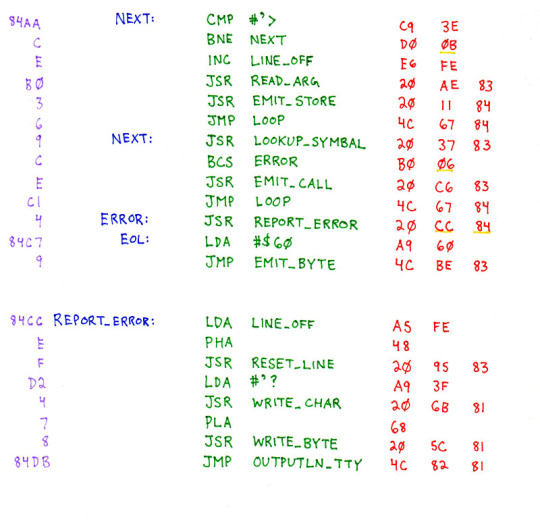 84AA NEXT: CMP #'> C9 3E
C BNE NEXT D0 0B
E INC LINE_OFF E6 FE
B0 JSR READ_ARG 20 AE 83
3 JSR EMIT_STORE 20 11 84
6 JMP LOOP 4C 67 84
9 NEXT: JSR LOOKUP_SYMBAL 20 37 83
C BCS ERROR B0 06
E JSR EMIT_CALL 20 C6 83
C1 JMP LOOP 4C 67 84
4 ERROR: JSR REPORT_ERROR 20 CC 84
84C7 EOL: LDA #$60 A9 60
9 JMP EMIT_BYTE 4C BE 83
84CC REPORT_ERROR: LDA LINE_OFF A5 FE
E PHA 48
F JSR RESET_LINE 20 95 83
D2 LDA #'? A9 3F
4 JSR WRITE_CHAR 20 6B 81
7 PLA 68
8 JSR WRITE_BYTE 20 5C 81
84DB JMP OUTPUTLN_TTY 4C 82 81